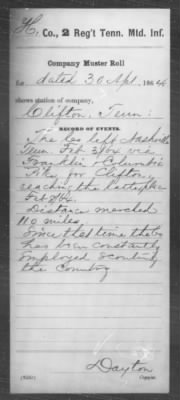 H. Co., 2 Reg't Tenn. Mtd. Inf.
Company Muster Roll
for dated 30 Apl, 1864
shows station of company,
Clifton, Tenn:
RECORD OF EVENTS.
The Co left Nashville
Tenn. Feb 3/64 via
Franklin & Columbia
Pike for Clifton,
reaching the latter place
Feb 8/64.
Distance marched
110 miles.
Since that time the Co
has been constantly
employed scouting
the Country
Dayton
Copyist.